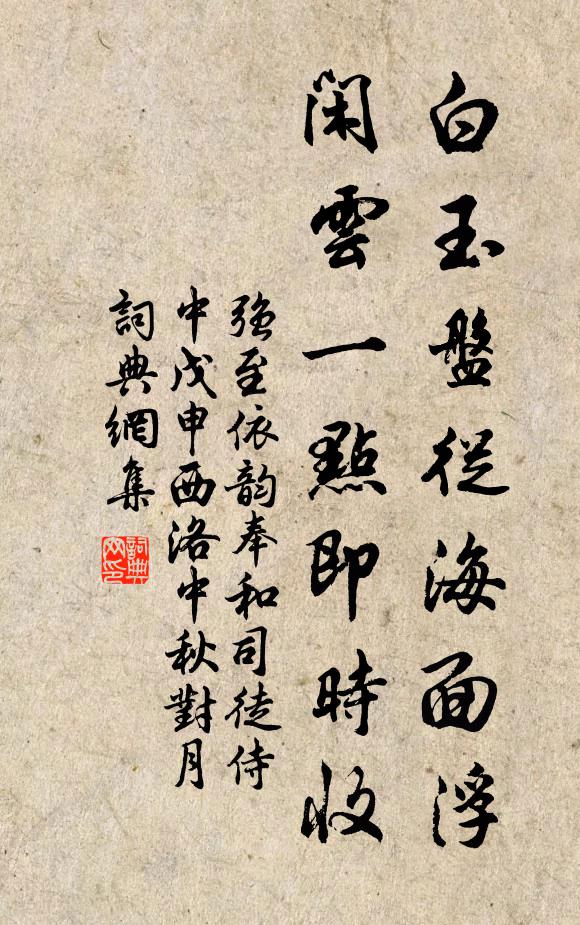 白玉盤從海面浮
閑雲一點即時收
強至依韵奉和司徒侍
中戊申西洛中秋對月
詞典網集
詞典
网印